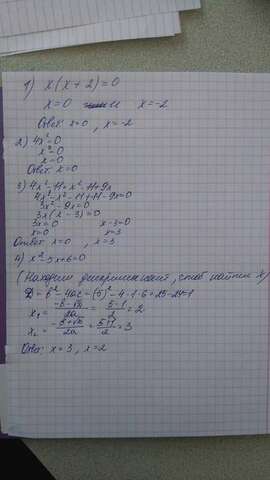 1) x(x+2)=0
x=0 и x=-2
Ответ: x=0, x=-2
2) 4x²-0
x²-0
x-0
Ответ: x=0
3) 4x²-11=x²-11+9x
4x²-x²-11+11-9x=0
3x²-9x=0
3x(x-3)=0
3x=0 x-3=0
x=0 x=3
Ответ: x=0, x=3
4) x²-5x+6=0
(Находим дискриминант, чтоб найти x)
D=b²-4ac=(5)²-4·1·6=25-24=1
x₁=(-b-√D)/2a=(5-1)/2=2
x₂=(-b+√D)/2a=(5+1)/2=3
Ответ: x=3, x=2